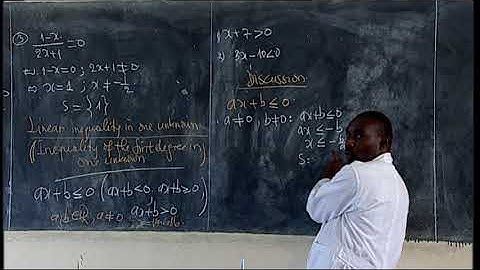 3) (1-x)/(2x+1) = 0
⇔ 1-x=0 ; 2x+1≠0
⇔ x=1 ; x≠-1/2
S={1}
Linear inequality in one unknown
(Inequality of the first degree in
one unknown)
ax+b≤0 (ax+b<0, ax+b≥0)
a,b∈ℝ, a≠0 ax+b>0
1) x+7>0
2) 3x-10<0
Discussion
ax+b≤0
a≠0, b≠0: ax+b≤0
ax≤-b
x≤-b/a
S: